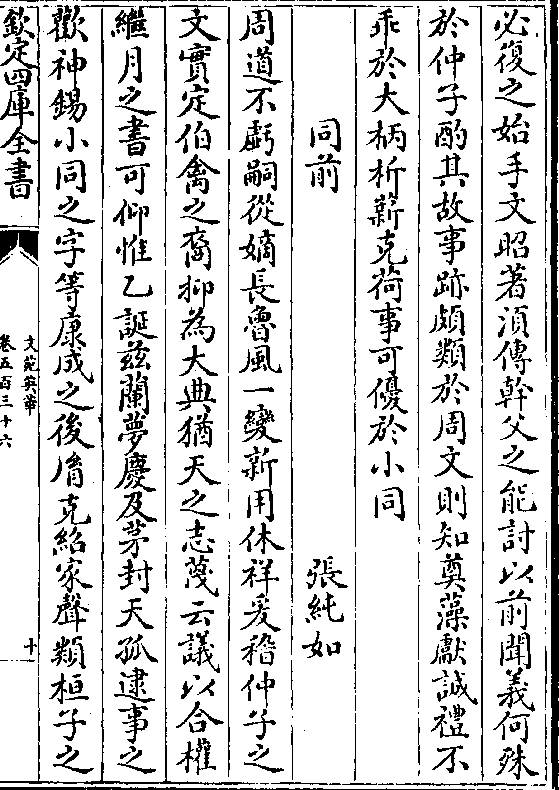 必復之始手文昭著湏傳幹父之能討以前聞義何殊
於仲子酌其故事跡頗類於周文則知奠藻獻誠禮不
乖於大柄析薪克荷事可優於小同
同前 張純如
周道不虧嗣從嫡長魯風一變新用休祥爰稽仲子之
文實定伯禽之裔抑為大典猶天之志蔑云議以合權
繼月之書可仰惟乙誕兹蘭夢慶及茅封天孤逮事之
歡神錫小同之字等康成之後胤克紹家聲類桓子之
欽定四庫全書
文苑英華
卷五百三十六
十